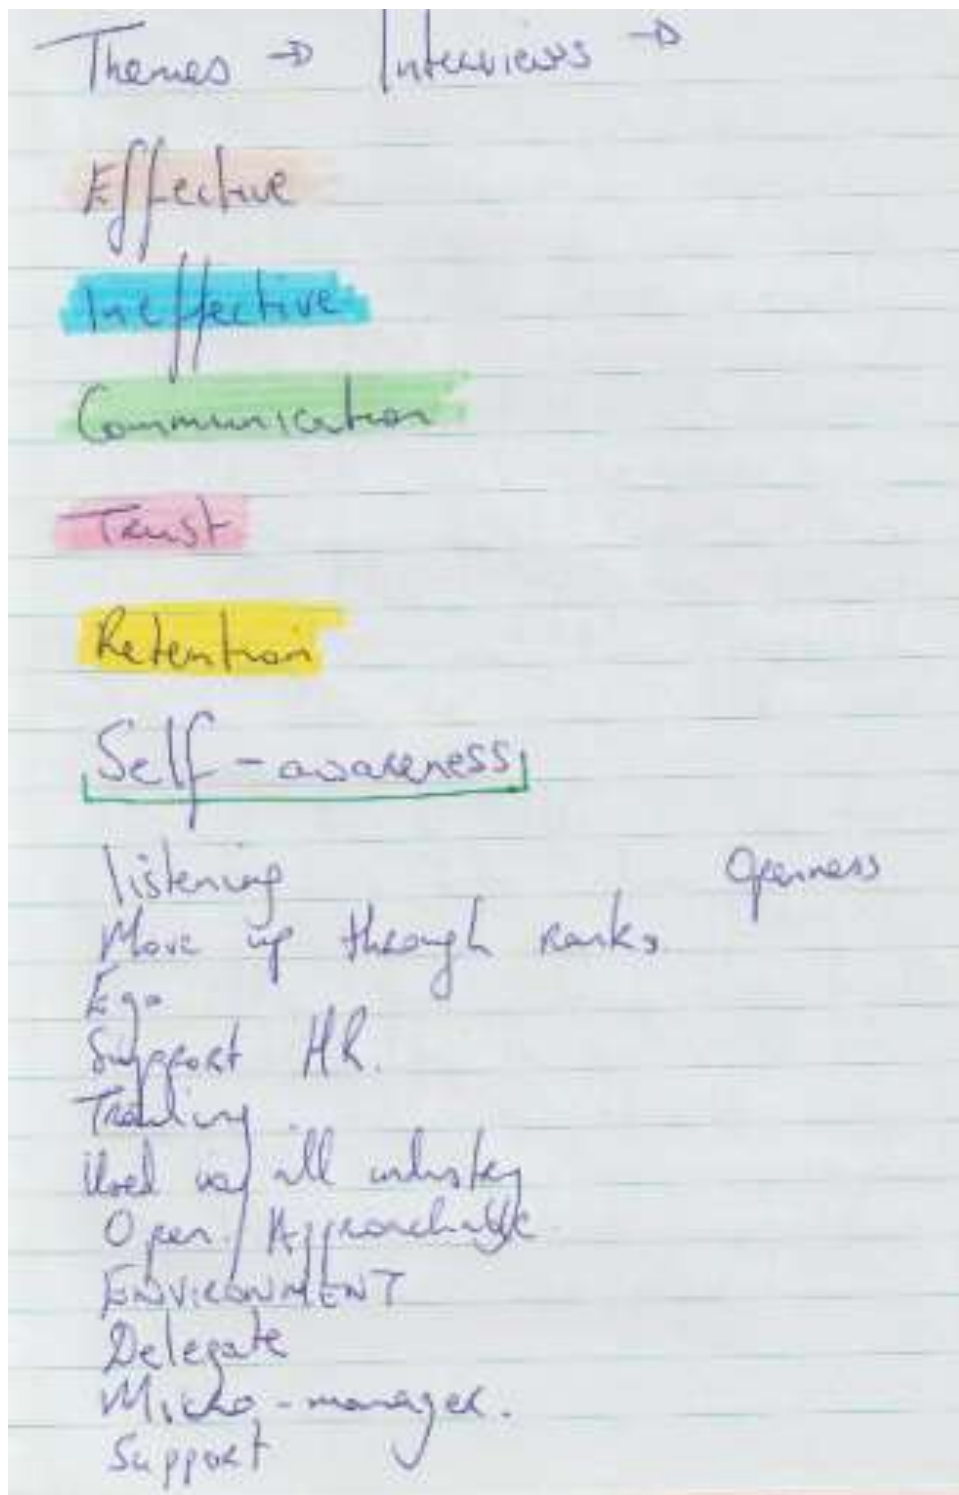 Themes → Interviews →
Effective
Ineffective
Communication
Trust
Retention
Self-awareness
listening Openness
Move up through ranks
Ego
Support HR.
Training
Used in all industry
Open/Approachable
ENVIRONMENT
Delegate
Micro-manager.
Support